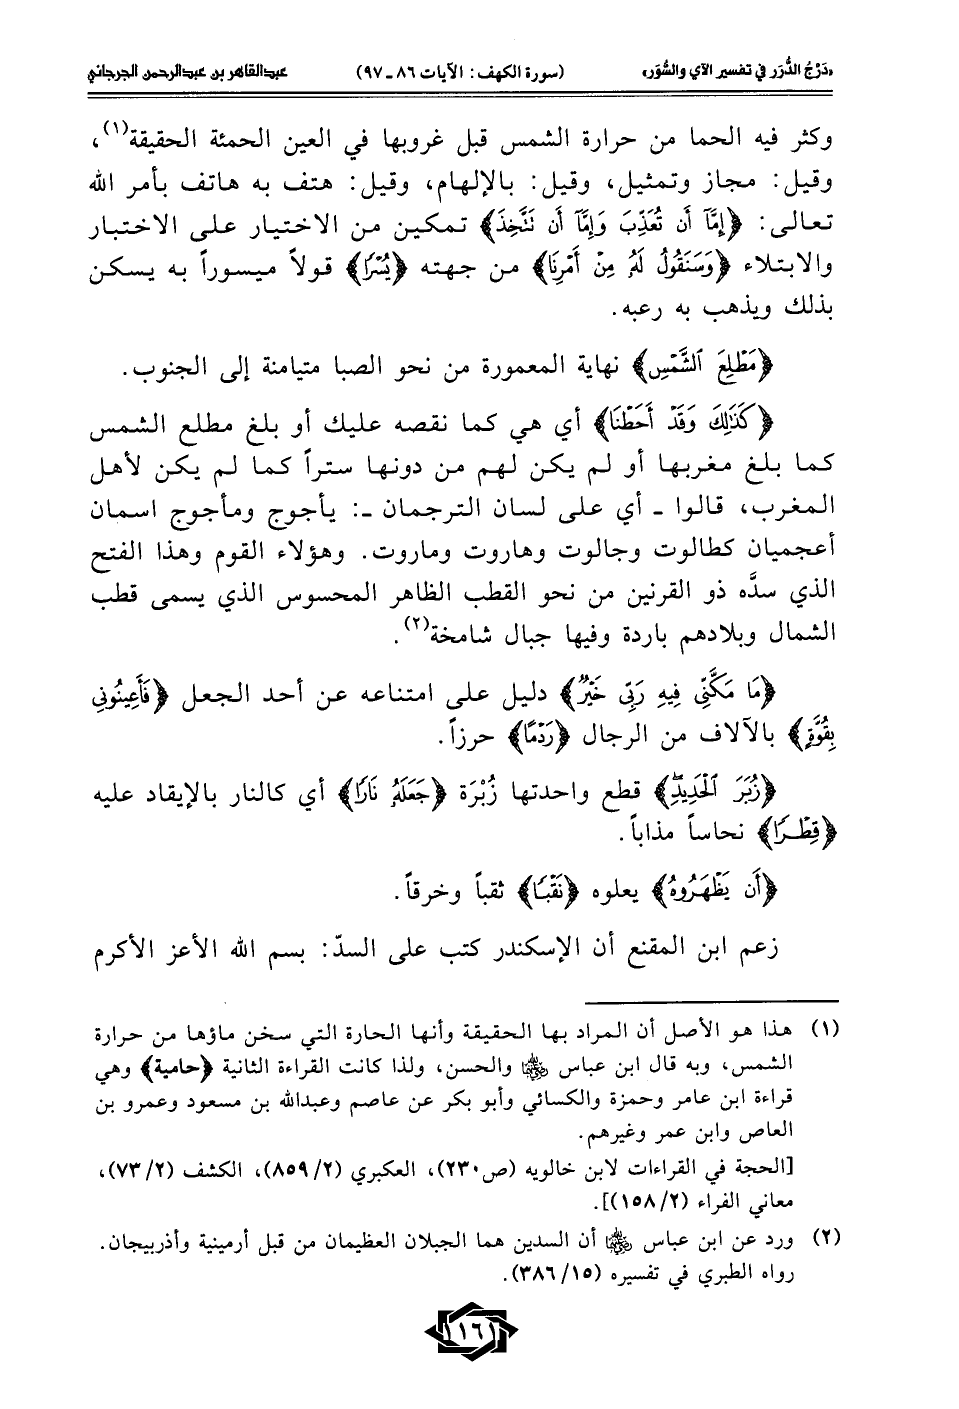 «دَرْجُ الدُّرَر في تفسير الآي والسُّوَر» (سورة الكهف: الآيات ٨٦ ـ ٩٧) عبدالقاهر بن عبدالرحمن الجرجاني
وكثر فيه الحما من حرارة الشمس قبل غروبها في العين الحمئة الحقيقة(١)،
وقيل: مجاز وتمثيل، وقيل: بالإلهام، وقيل: هتف به هاتف بأمر الله
تعالى: ﴿إِمَّآ أَن تُعَذِّبَ وَإِمَّآ أَن تَتَّخِذَ﴾ تمكين من الاختيار على الاختبار
والابتلاء ﴿وَسَنَقُولُ لَهُۥ مِنْ أَمْرِنَا﴾ من جهته ﴿يُسْرًا﴾ قولاً ميسوراً به يسكن
بذلك ويذهب به رعبه.
﴿مَطْلِعَ ٱلشَّمْسِ﴾ نهاية المعمورة من نحو الصبا متيامنة إلى الجنوب.
﴿كَذَٰلِكَ وَقَدْ أَحَطْنَا﴾ أي هي كما نقصه عليك أو بلغ مطلع الشمس
كما بلغ مغربها أو لم يكن لهم من دونها ستراً كما لم يكن لأهل
المغرب، قالوا ـ أي على لسان الترجمان ـ: يأجوج ومأجوج اسمان
أعجميان كطالوت وجالوت وهاروت وماروت. وهؤلاء القوم وهذا الفتح
الذي سدَّه ذو القرنين من نحو القطب الظاهر المحسوس الذي يسمى قطب
الشمال وبلادهم باردة وفيها جبال شامخة(٢).
﴿مَا مَكَّنِّي فِيهِ رَبِّي خَيْرٌ﴾ دليل على امتناعه عن أحد الجعل ﴿فَأَعِينُونِي
بِقُوَّةٍ﴾ بالآلاف من الرجال ﴿رَدْمًا﴾ حرزاً.
﴿زُبَرَ ٱلْحَدِيدِ﴾ قطع واحدتها زُبْرَة ﴿جَعَلَهُۥ نَارًا﴾ أي كالنار بالإيقاد عليه
﴿قِطْرًا﴾ نحاساً مذاباً.
﴿أَن يَظْهَرُوهُ﴾ يعلوه ﴿نَقْبًا﴾ ثقباً وخرقاً.
زعم ابن المقنع أن الإسكندر كتب على السدّ: بسم الله الأعز الأكرم
(١) هذا هو الأصل أن المراد بها الحقيقة وأنها الحارة التي سخن ماؤها من حرارة
الشمس، وبه قال ابن عباس والحسن، ولذا كانت القراءة الثانية ﴿حامية﴾ وهي
قراءة ابن عامر وحمزة والكسائي وأبو بكر عن عاصم وعبدالله بن مسعود وعمرو بن
العاص وابن عمر وغيرهم.
[الحجة في القراءات لابن خالويه (ص٢٣٠)، العكبري (٨٥٩/٢)، الكشف (٧٣/٢)،
معاني الفراء (١٥٨/٢)].
(٢) ورد عن ابن عباس أن السدين هما الجبلان العظيمان من قبل أرمينية وأذربيجان.
رواه الطبري في تفسيره (٣٨٦/١٥).
١١٦١